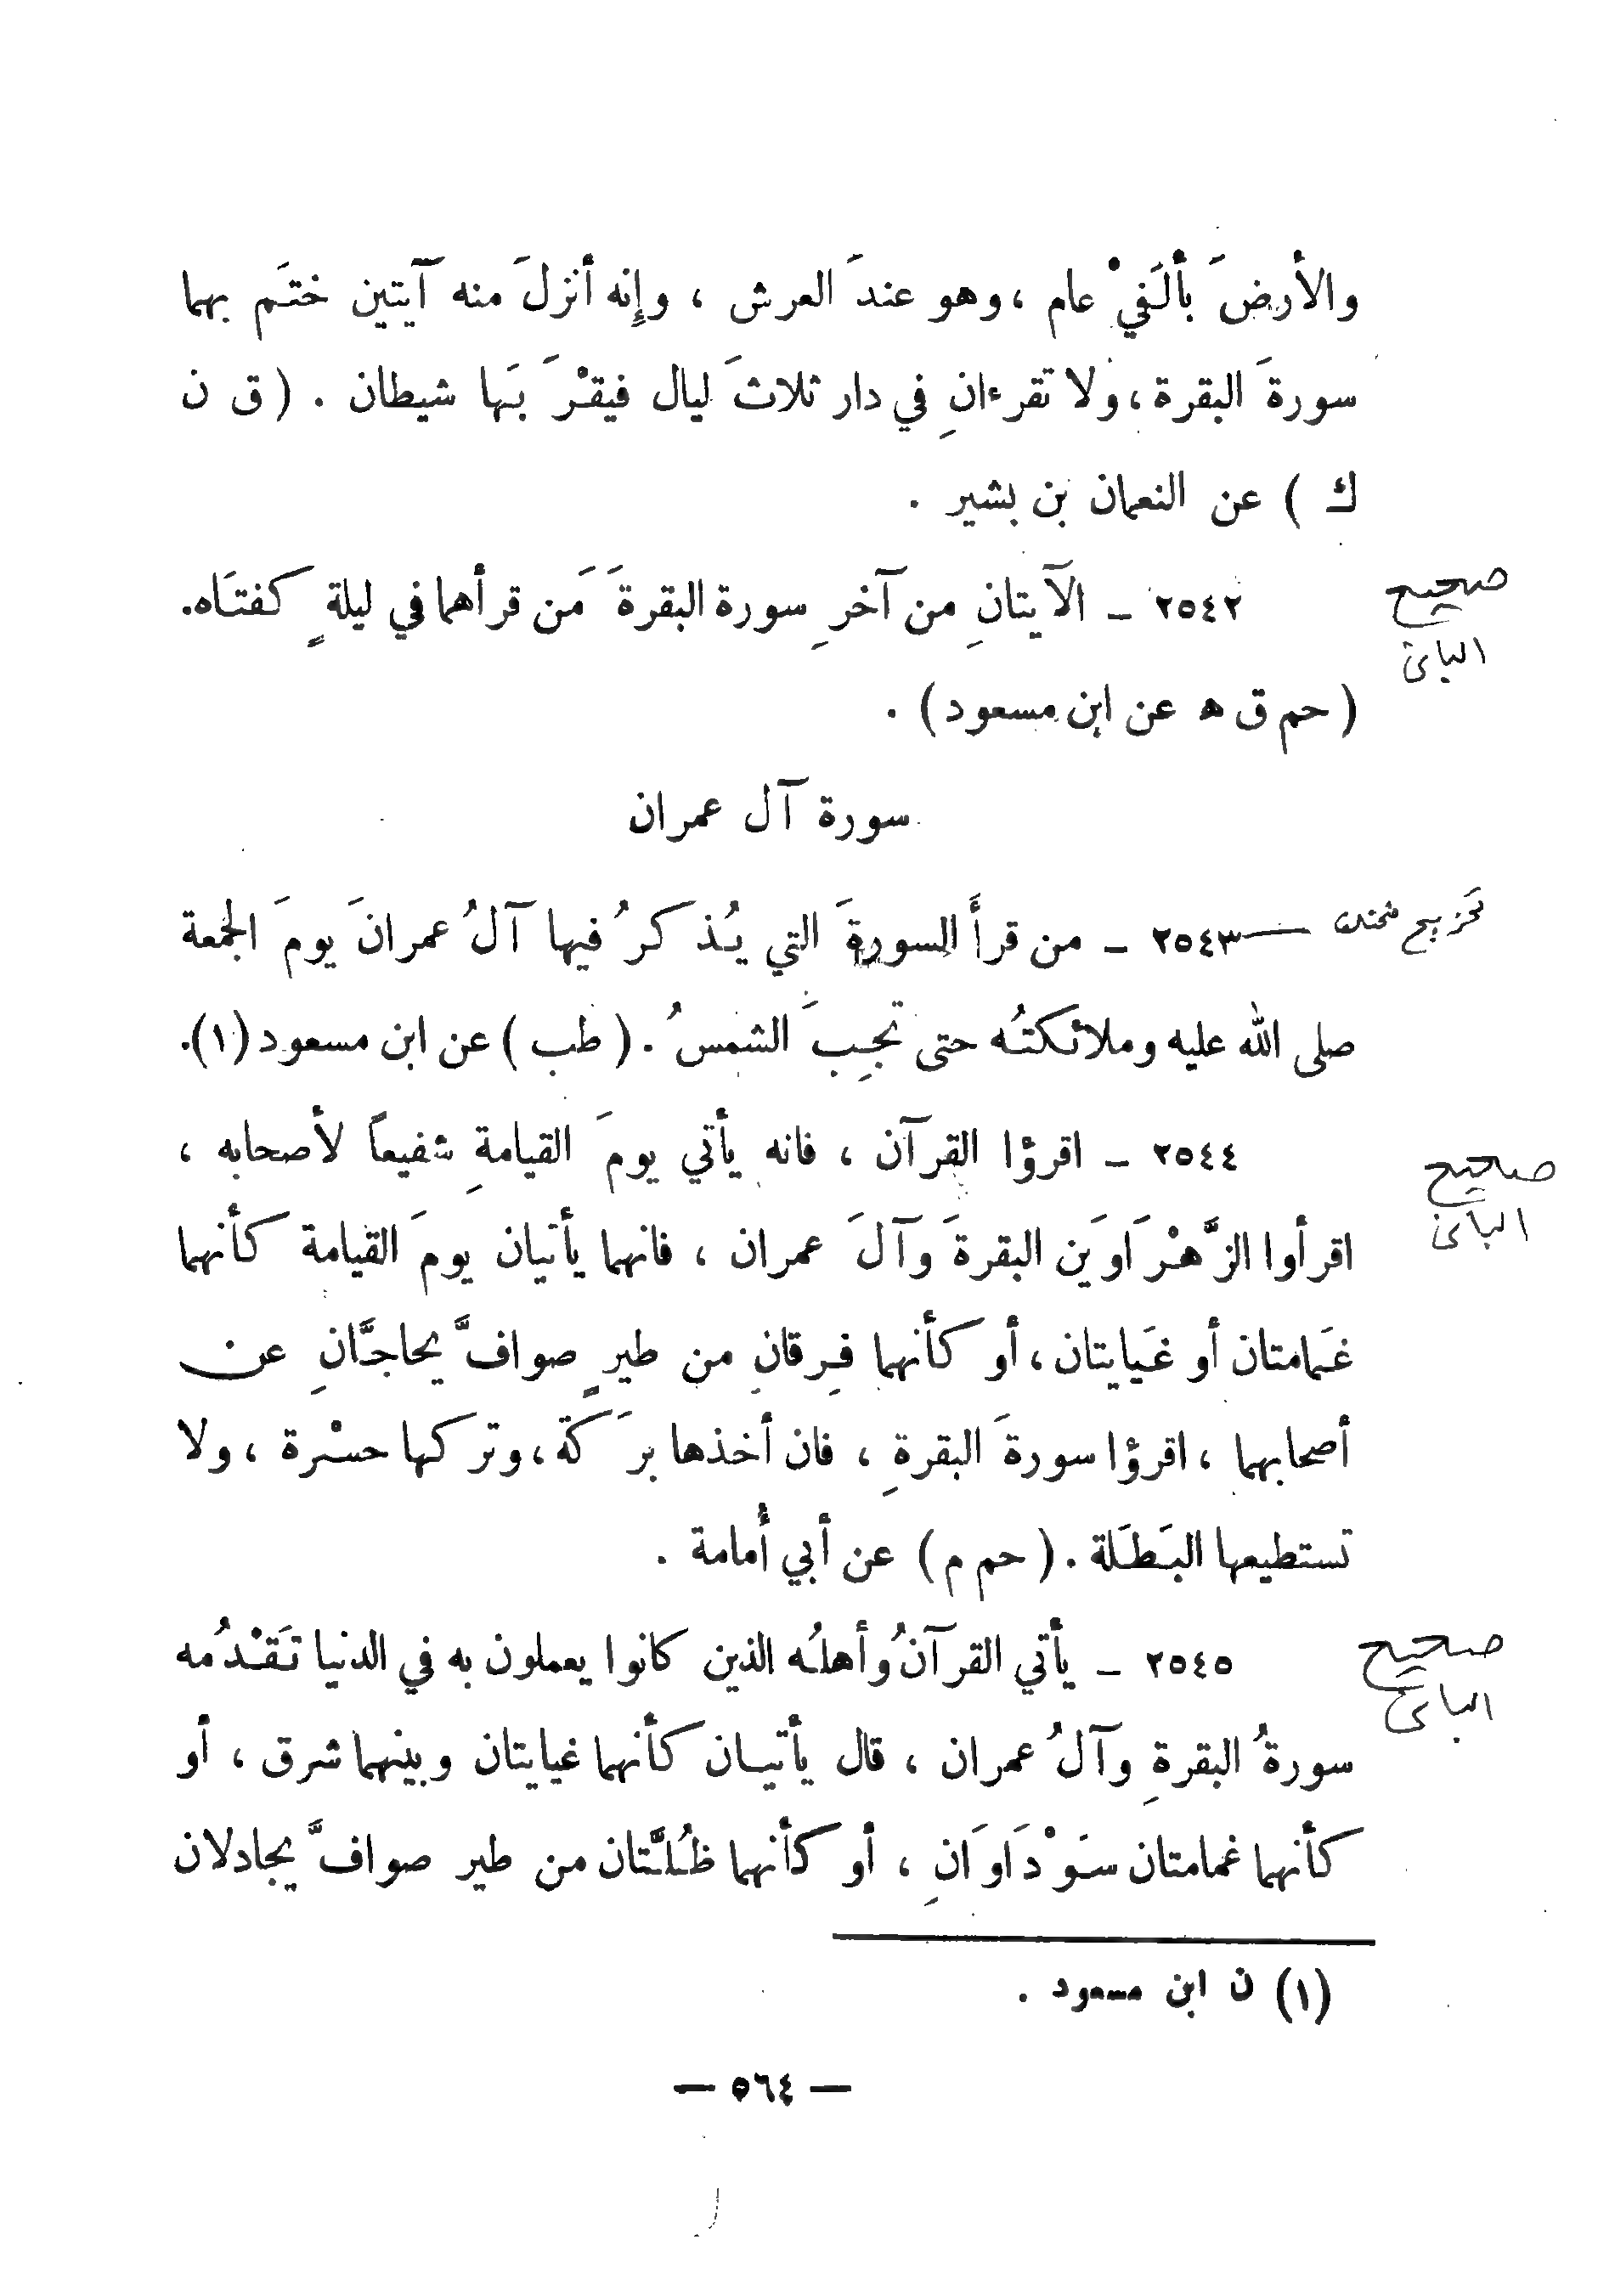 والأرضَ بألَفيْ عام ، وهو عندَ العرش ، وإنه أنزلَ منه آيتين ختَم بهما
سورةَ البقرة ، ولا تقرءانِ في دار ثلاثَ ليال فيقرْبَها شيطان . ( ق ن
ك ) عن النعمان بن بشير .
صحيح
الباني
٢٥٤٢ ــ الآيتانِ من آخرِ سورة البقرةَ مَن قرأهما في ليلةٍ كفتَاه.
( حم ق ه عن ابن مسعود ) .
سورة آل عمران
تخريج
٢٥٤٣ ــ من قرأَ السورةَ التي يُذكرُ فيها آلُ عمرانَ يومَ الجمعة
صلى الله عليه وملائكتُه حتى تجِبَ الشمسُ . ( طب ) عن ابن مسعود (١).
صحيح
الباني
٢٥٤٤ ــ اقرؤا القرآن ، فانه يأتي يومَ القيامةِ شفيعاً لأصحابه ،
اقرأوا الزَّهْرَاوَين البقرةَ وآلَ عمران ، فانهما يأتيان يومَ القيامة كأنهما
غَمامتان أو غَيايتان ، أو كأنهما فِرقانِ من طيرٍ صوافَّ يحاجَّانِ عن
أصحابهما ، اقرؤا سورةَ البقرةِ ، فان أخذها برَكة ، وتركها حسْرة ، ولا
تستطيعها البَطَلة . ( حم م ) عن أبي أُمامة .
صحيح
الباني
٢٥٤٥ ــ يأتي القرآنُ وأهلُه الذين كانوا يعملون به في الدنيا تَقْدُمه
سورةُ البقرةِ وآلُ عمران ، قال يأتيـان كأنهما غيايتان وبينهما شرق ، أو
كأنهما غمامتان سَوْدَاوَانِ ، أو كأنهما ظُلَّتان من طير صوافَّ يجادلان
(١) ن ابن مسعود .
— ٥٦٤ —